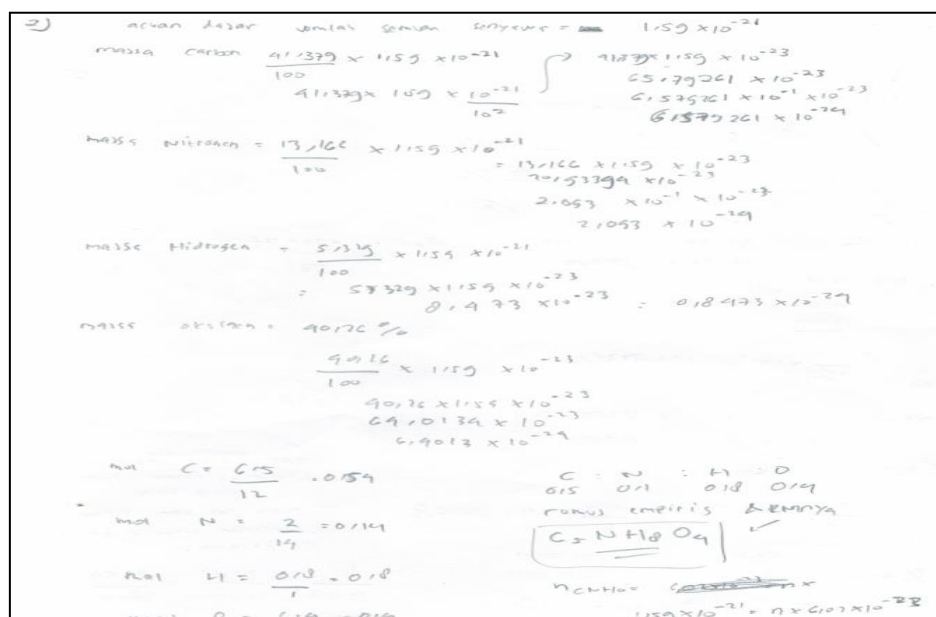 2) acuan dasar semua senyawa = 1,59 x 10^-21
massa carbon 41,379/100 x 1,59 x 10^-21
41,379 x 1,59 x 10^-21/10^2
41,379 x 1,59 x 10^-23
65,79261 x 10^-23
6,579261 x 10^-1 x 10^-23
6,579261 x 10^-24
massa Nitrogen = 13,166/100 x 1,59 x 10^-21
= 13,166 x 1,59 x 10^-23
20,93394 x 10^-23
2,093 x 10^-1 x 10^-23
2,093 x 10^-24
massa Hidrogen = 5,329/100 x 1,59 x 10^-21
= 5,329 x 1,59 x 10^-23
8,473 x 10^-23 = 0,8473 x 10^-24
massa oksigen = 40,26 %
40,26/100 x 1,59 x 10^-23
40,26 x 1,59 x 10^-23
64,0134 x 10^-23
6,4013 x 10^-24
mol C = 6,5/12 = 0,54
mol N = 2/14 = 0,14
mol H = 0,8/1 = 0,8
C : N : H : O
0,5 0,1 0,8 0,4
rumus empiris
C5NH8O4
1,59 x 10^-21 = n x 6,02 x 10^-23